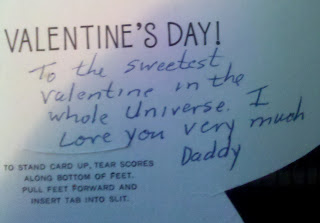 VALENTINE'S DAY!
To the sweetest
valentine in the
whole Universe. I
Love you very much
Daddy
TO STAND CARD UP, TEAR SCORES
ALONG BOTTOM OF FEET.
PULL FEET FORWARD AND
INSERT TAB INTO SLIT.